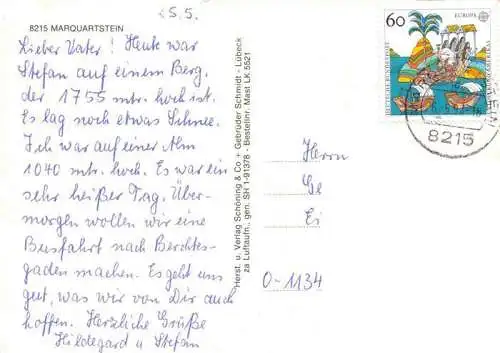 25.5.
8215 MARQUARTSTEIN
Lieber Vater! Heute war
Stefan auf einem Berg,
der 1755 mtr. hoch ist.
Es lag noch etwas Schnee.
Ich war auf einer Alm
1040 mtr. hoch. Es war ein
sehr heißer Tag. Über-
morgen wollen wir eine
Busfahrt nach Berchtes-
gaden machen. Es geht uns
gut, was wir von Dir auch
hoffen. Herzliche Grüße
Hildegard u Stefan
Herst. u. Verlag Schöning & Co + Gebrüder Schmidt - Lübeck
zu Luftaufn., gen. SH 1-91378 - Bestellnr. Mast LK 5521
60
EUROPA
DEUTSCHE BUNDESPOST
8215
Herrn
Ge
Ei
O-1134